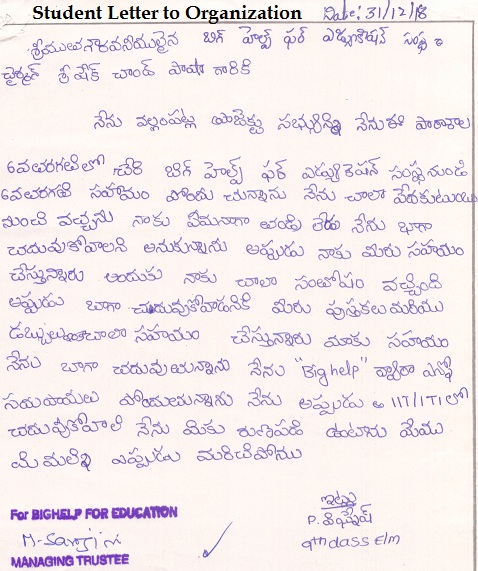 Student Letter to Organization
Date: 31/12/18
శ్రీయుతగౌరవనీయులైన బిగ్ హెల్ప్ ఫర్ ఎడ్యుకేషన్ సంస్థ
చైర్మన్ శ్రీ షేక్ చాంద్ పాషా గారికి
నేను వల్లంపట్ల ప్రాజెక్టు సభ్యున్ని నేను ఈ పాఠశాల
6వతరగతిలో చేరి బిగ్ హెల్ప్ ఫర్ ఎడ్యుకేషన్ సంస్థనుండి
6వతరగతి సహాయం పొందు చున్నాను నేను చాలా పేదకుటుంబం
నుంచి వచ్చాను నాకు తండ్రి లేడు నేను బాగా
చదువుకోవాలని అనుకున్నాను అప్పుడు నాకు మీరు సహాయం
చేస్తున్నారు అందుకు నాకు చాలా సంతోషం వచ్చింది
అప్పుడు బాగా చదువుకోవడానికి మీరు పుస్తకలు మరియు
డబ్బులు చాలా సహాయం చేస్తున్నారు మాకు సహాయం
నేను బాగా చదువుతున్నాను నేను "Big help" ద్వారా ఎన్నో
సదుపాయలు పొందుతున్నాను నేను అప్పుడు IIT/ITI లో
చదువుకోవాలి నేను మీకు రుణపడి ఉంటాను మేము
మిమలిని ఎప్పుడు మరిచిపోను
ఇట్లు
P. విఘ్నేష్
9th class E/m
For BIGHELP FOR EDUCATION
M. Sarojini
MANAGING TRUSTEE